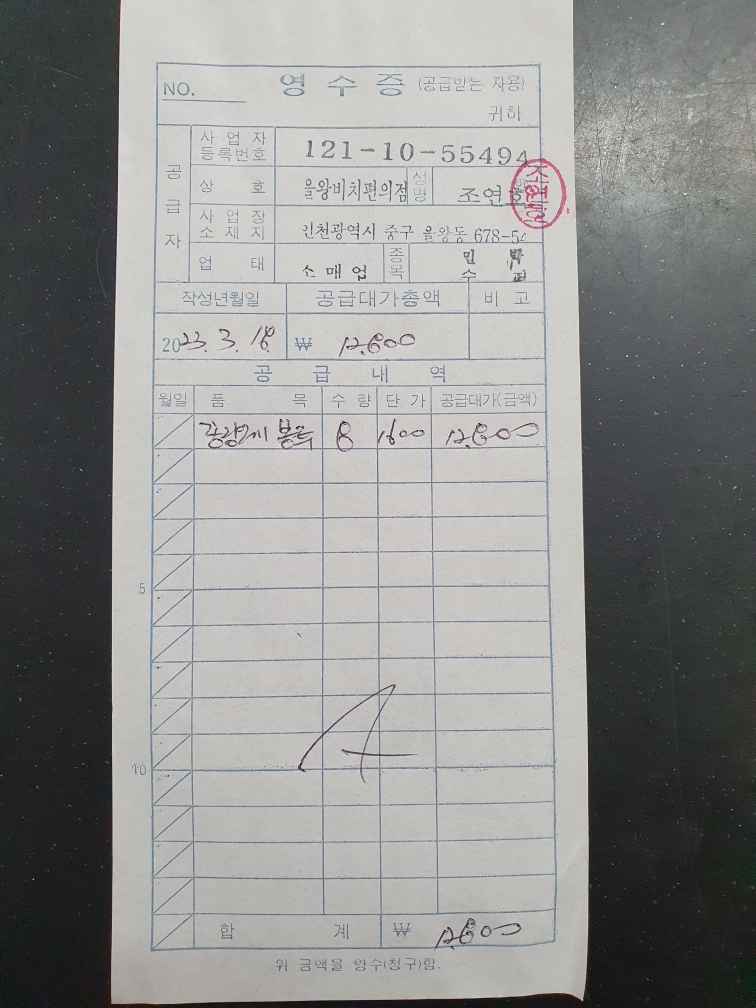 영 수 증 (공급받는 자용)
NO.
귀하
공급자
사업자등록번호 121-10-55494
상호 을왕비치편의점 성명 조연
사업장소재지 인천광역시 중구 을왕동 678-54
업태 소매업 종목 민 박
수 퍼
작성년월일 공급대가총액 비고
2023. 3. 18. ₩ 12,800
공 급 내 역
월일 품 목 수 량 단 가 공급대가(금액)
종량제 봉투 8 1600 12,800
5
10
합 계 ₩ 12,800
위 금액을 영수(청구)함.